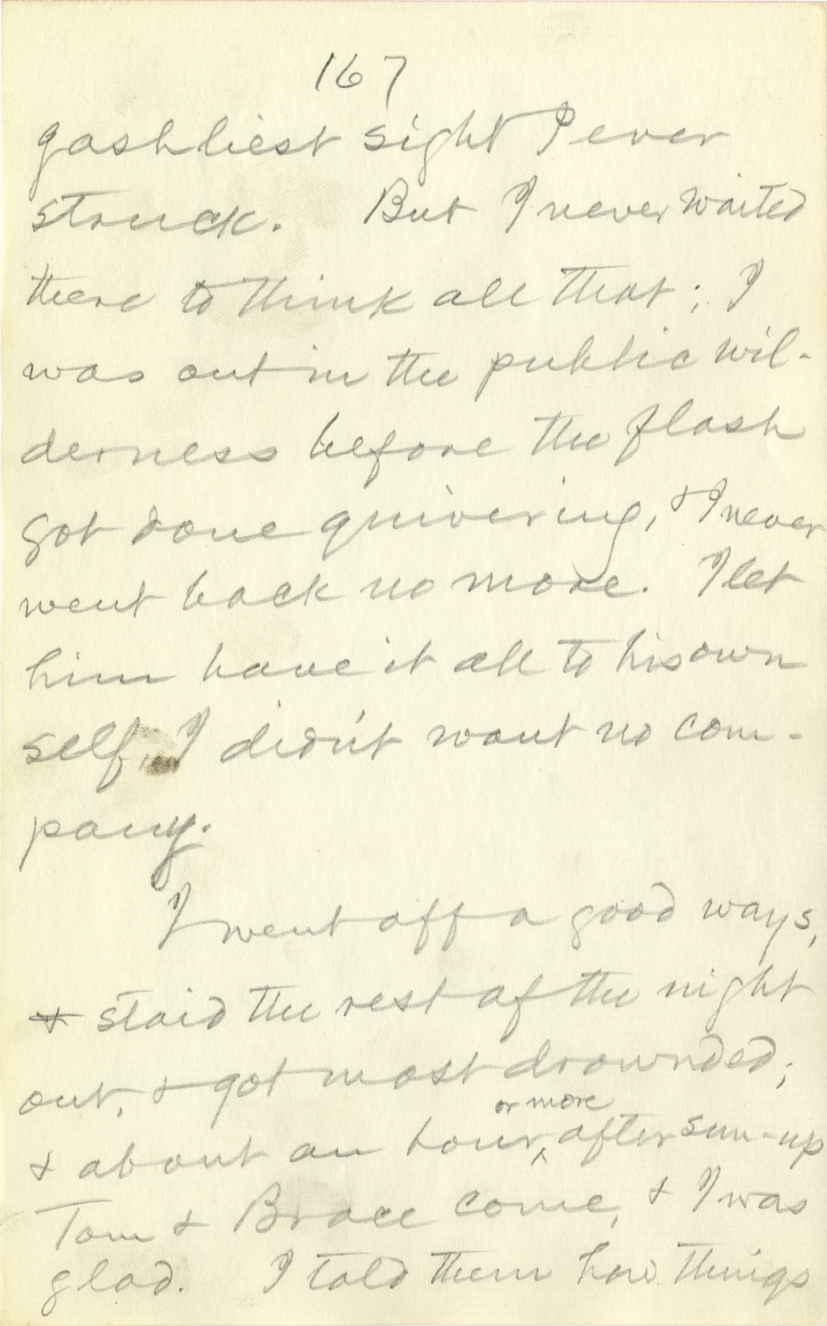 167
gashliest sight I ever
struck. But I never waited
there to think all that; I
was out in the public wil-
derness before the flash
got done quivering, & I never
went back no more. I let
him have it all to his own
self, I didn't want no com-
pany.
I went off a good ways,
& staid the rest of the night
out, & got most drownded;
or more
& about an hour, ^ after sun-up
Tom & Brace come, & I was
glad. I told them how things